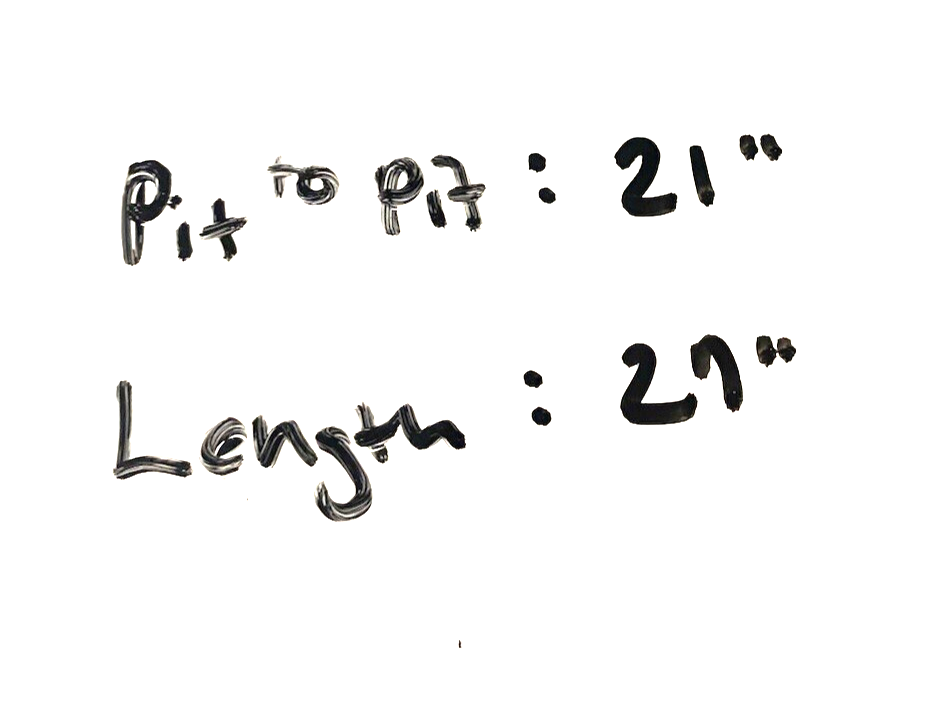 Pit to Pit : 21"
Length : 27"